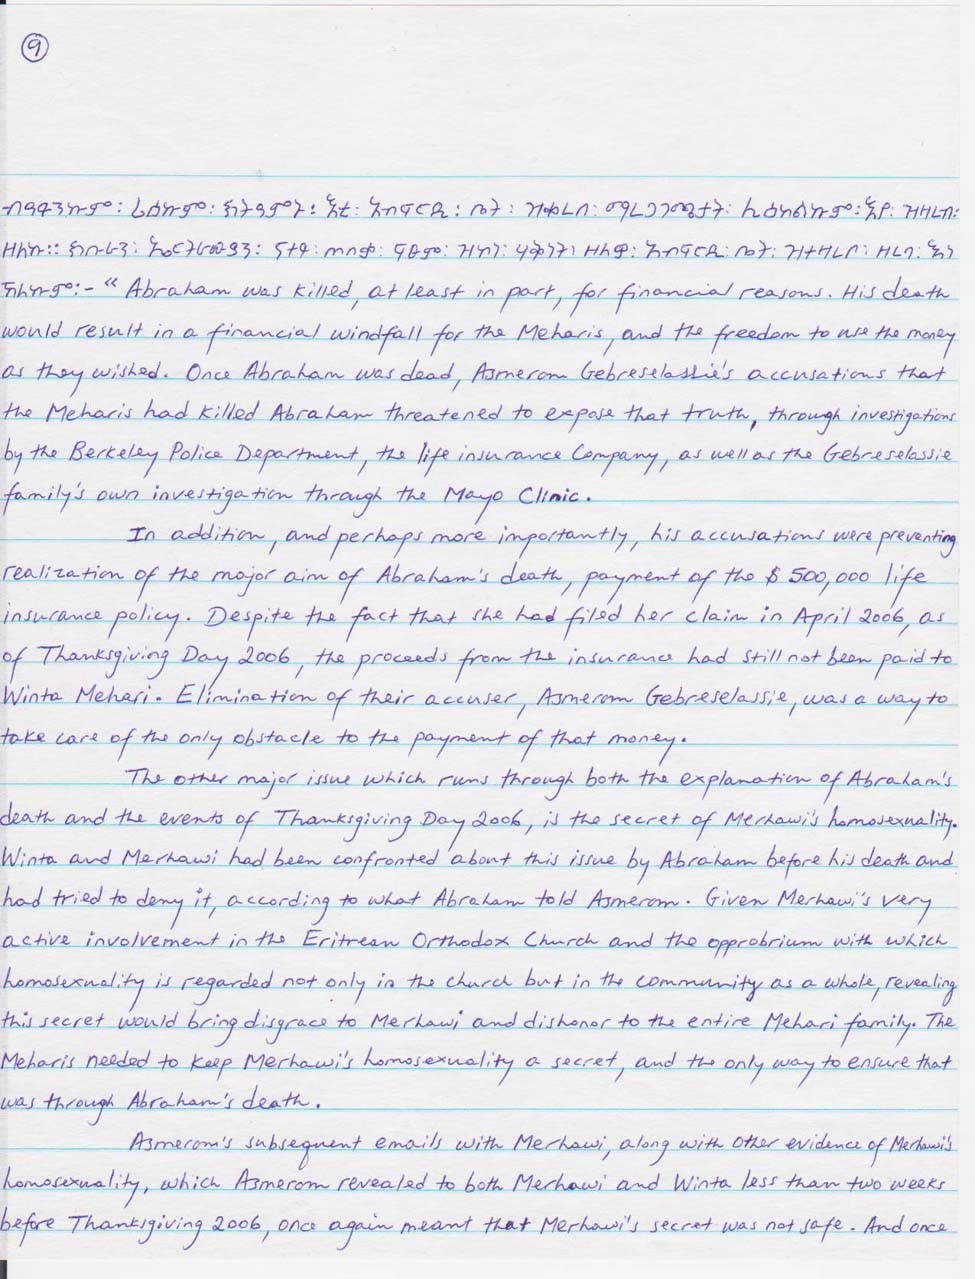 9
እቲ፡ ኣብፍርዲ፡ ቤት፡ ዝቀረበ፡
ኣብፍርዲ፡ ቤት፡
“Abraham was killed, at least in part, for financial reasons. His death
would result in a financial windfall for the Meharis, and the freedom to use the money
as they wished. Once Abraham was dead, Asmerom Gebreselassie's accusations that
the Meharis had killed Abraham threatened to expose that truth, through investigations
by the Berkeley Police Department, the life insurance Company, as well as the Gebreselassie
family's own investigation through the Mayo Clinic.
In addition, and perhaps more importantly, his accusations were preventing
realization of the major aim of Abraham's death, payment of the $500,000 life
insurance policy. Despite the fact that she had filed her claim in April 2006, as
of Thanksgiving Day 2006, the proceeds from the insurance had still not been paid to
Winta Mehari. Elimination of their accuser, Asmerom Gebreselassie, was a way to
take care of the only obstacle to the payment of that money.
The other major issue which runs through both the explanation of Abraham's
death and the events of Thanksgiving Day 2006, is the secret of Merhawi's homosexuality.
Winta and Merhawi had been confronted about this issue by Abraham before his death and
had tried to deny it, according to what Abraham told Asmerom. Given Merhawi's very
active involvement in the Eritrean Orthodox Church and the opprobrium with which
homosexuality is regarded not only in the church but in the community as a whole, revealing
this secret would bring disgrace to Merhawi and dishonor to the entire Mehari family. The
Meharis needed to keep Merhawi's homosexuality a secret, and the only way to ensure that
was through Abraham's death.
Asmerom's subsequent emails with Merhawi, along with other evidence of Merhawi's
homosexuality, which Asmerom revealed to both Merhawi and Winta less than two weeks
before Thanksgiving 2006, once again meant that Merhawi's secret was not safe. And once